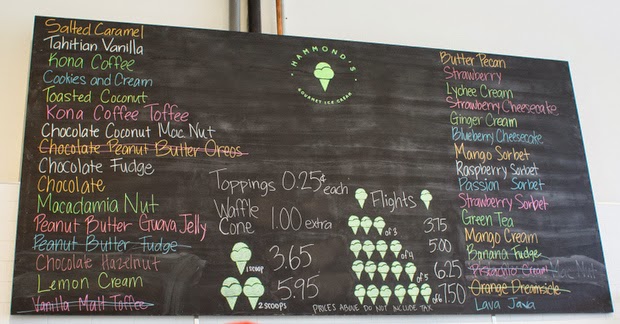 Salted Caramel
Tahitian Vanilla
Kona Coffee
Cookies and Cream
Toasted Coconut
Kona Coffee Toffee
Chocolate Coconut Mac Nut
Chocolate Peanut Butter Oreos
Chocolate Fudge
Chocolate
Macadamia Nut
Peanut Butter Guava Jelly
Peanut Butter Fudge
Chocolate Hazelnut
Lemon Cream
Vanilla Malt Toffee
HAMMOND'S
GOURMET ICE CREAM
Toppings 0.25¢ each
Waffle Cone 1.00 extra
1 SCOOP 3.65
2 SCOOPS 5.95
Flights
of 3 3.75
of 4 5.00
of 5 6.25
of 6 7.50
PRICES ABOVE DO NOT INCLUDE TAX
Butter Pecan
Strawberry
Lychee Cream
Strawberry Cheesecake
Ginger Cream
Blueberry Cheesecake
Mango Sorbet
Raspberry Sorbet
Passion Sorbet
Strawberry Sorbet
Green Tea
Mango Cream
Banana Fudge
Cream
Orange Dreamsicle
Lava Java